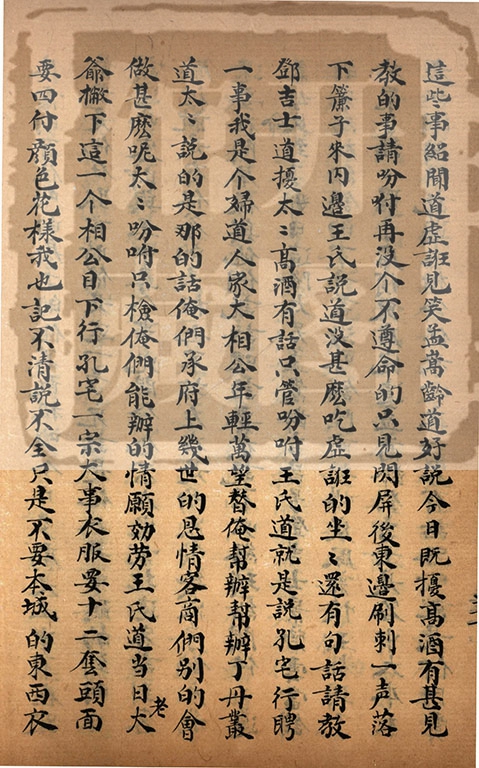 這些事紹聞道虛誑見笑孟嵩齡道好說今日既擾高酒有甚見
教的事請吩咐再没个不遵命的只見閃屏後東邊刷刺一声落
下簾子來内邊王氏說道没甚麽吃虛誑的坐〻還有句話請教
鄧吉士道擾太〻高酒有話只管吩咐王氏道就是說孔宅行聘
一事我是个婦道人家大相公年輕萬望替俺幫辦幫辦丁丹叢
道太〻說的是那的話俺們承府上幾世的恩情客啇們别的會
做甚麽呢太〻吩咐只檢俺們能辦的情願効劳王氏道當日大老
爺撇下這一个相公目下行孔宅一宗大事衣服要十二套頭面
要四付顔色花樣我也記不清説不全只是不要本城的東西衣